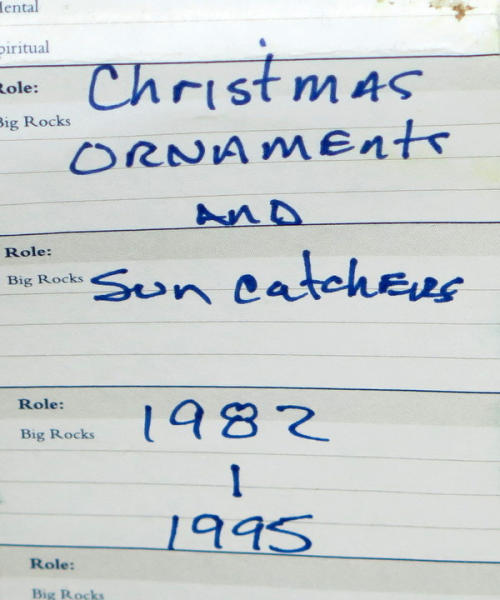 Mental
Spiritual
Role:
Big Rocks
Christmas
ORNAMENTS
AND
Role:
Big Rocks
Sun catchers
Role:
Big Rocks
1982
|
1995
Role:
Big Rocks